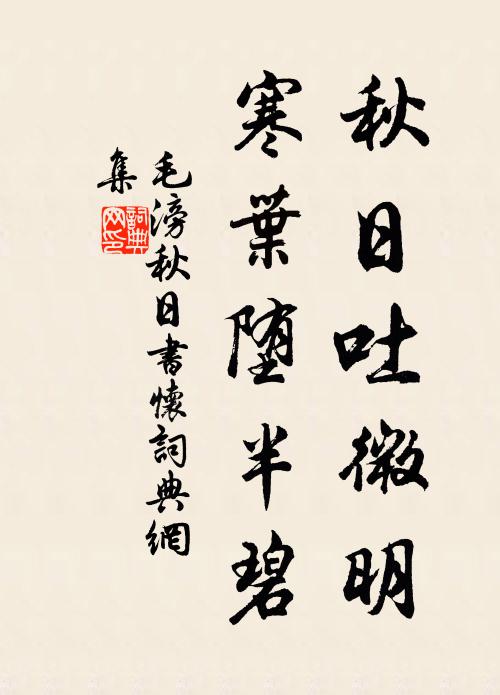 秋日吐微明
寒葉堕半碧
毛滂秋日書懷詞典網
集
詞典
网印